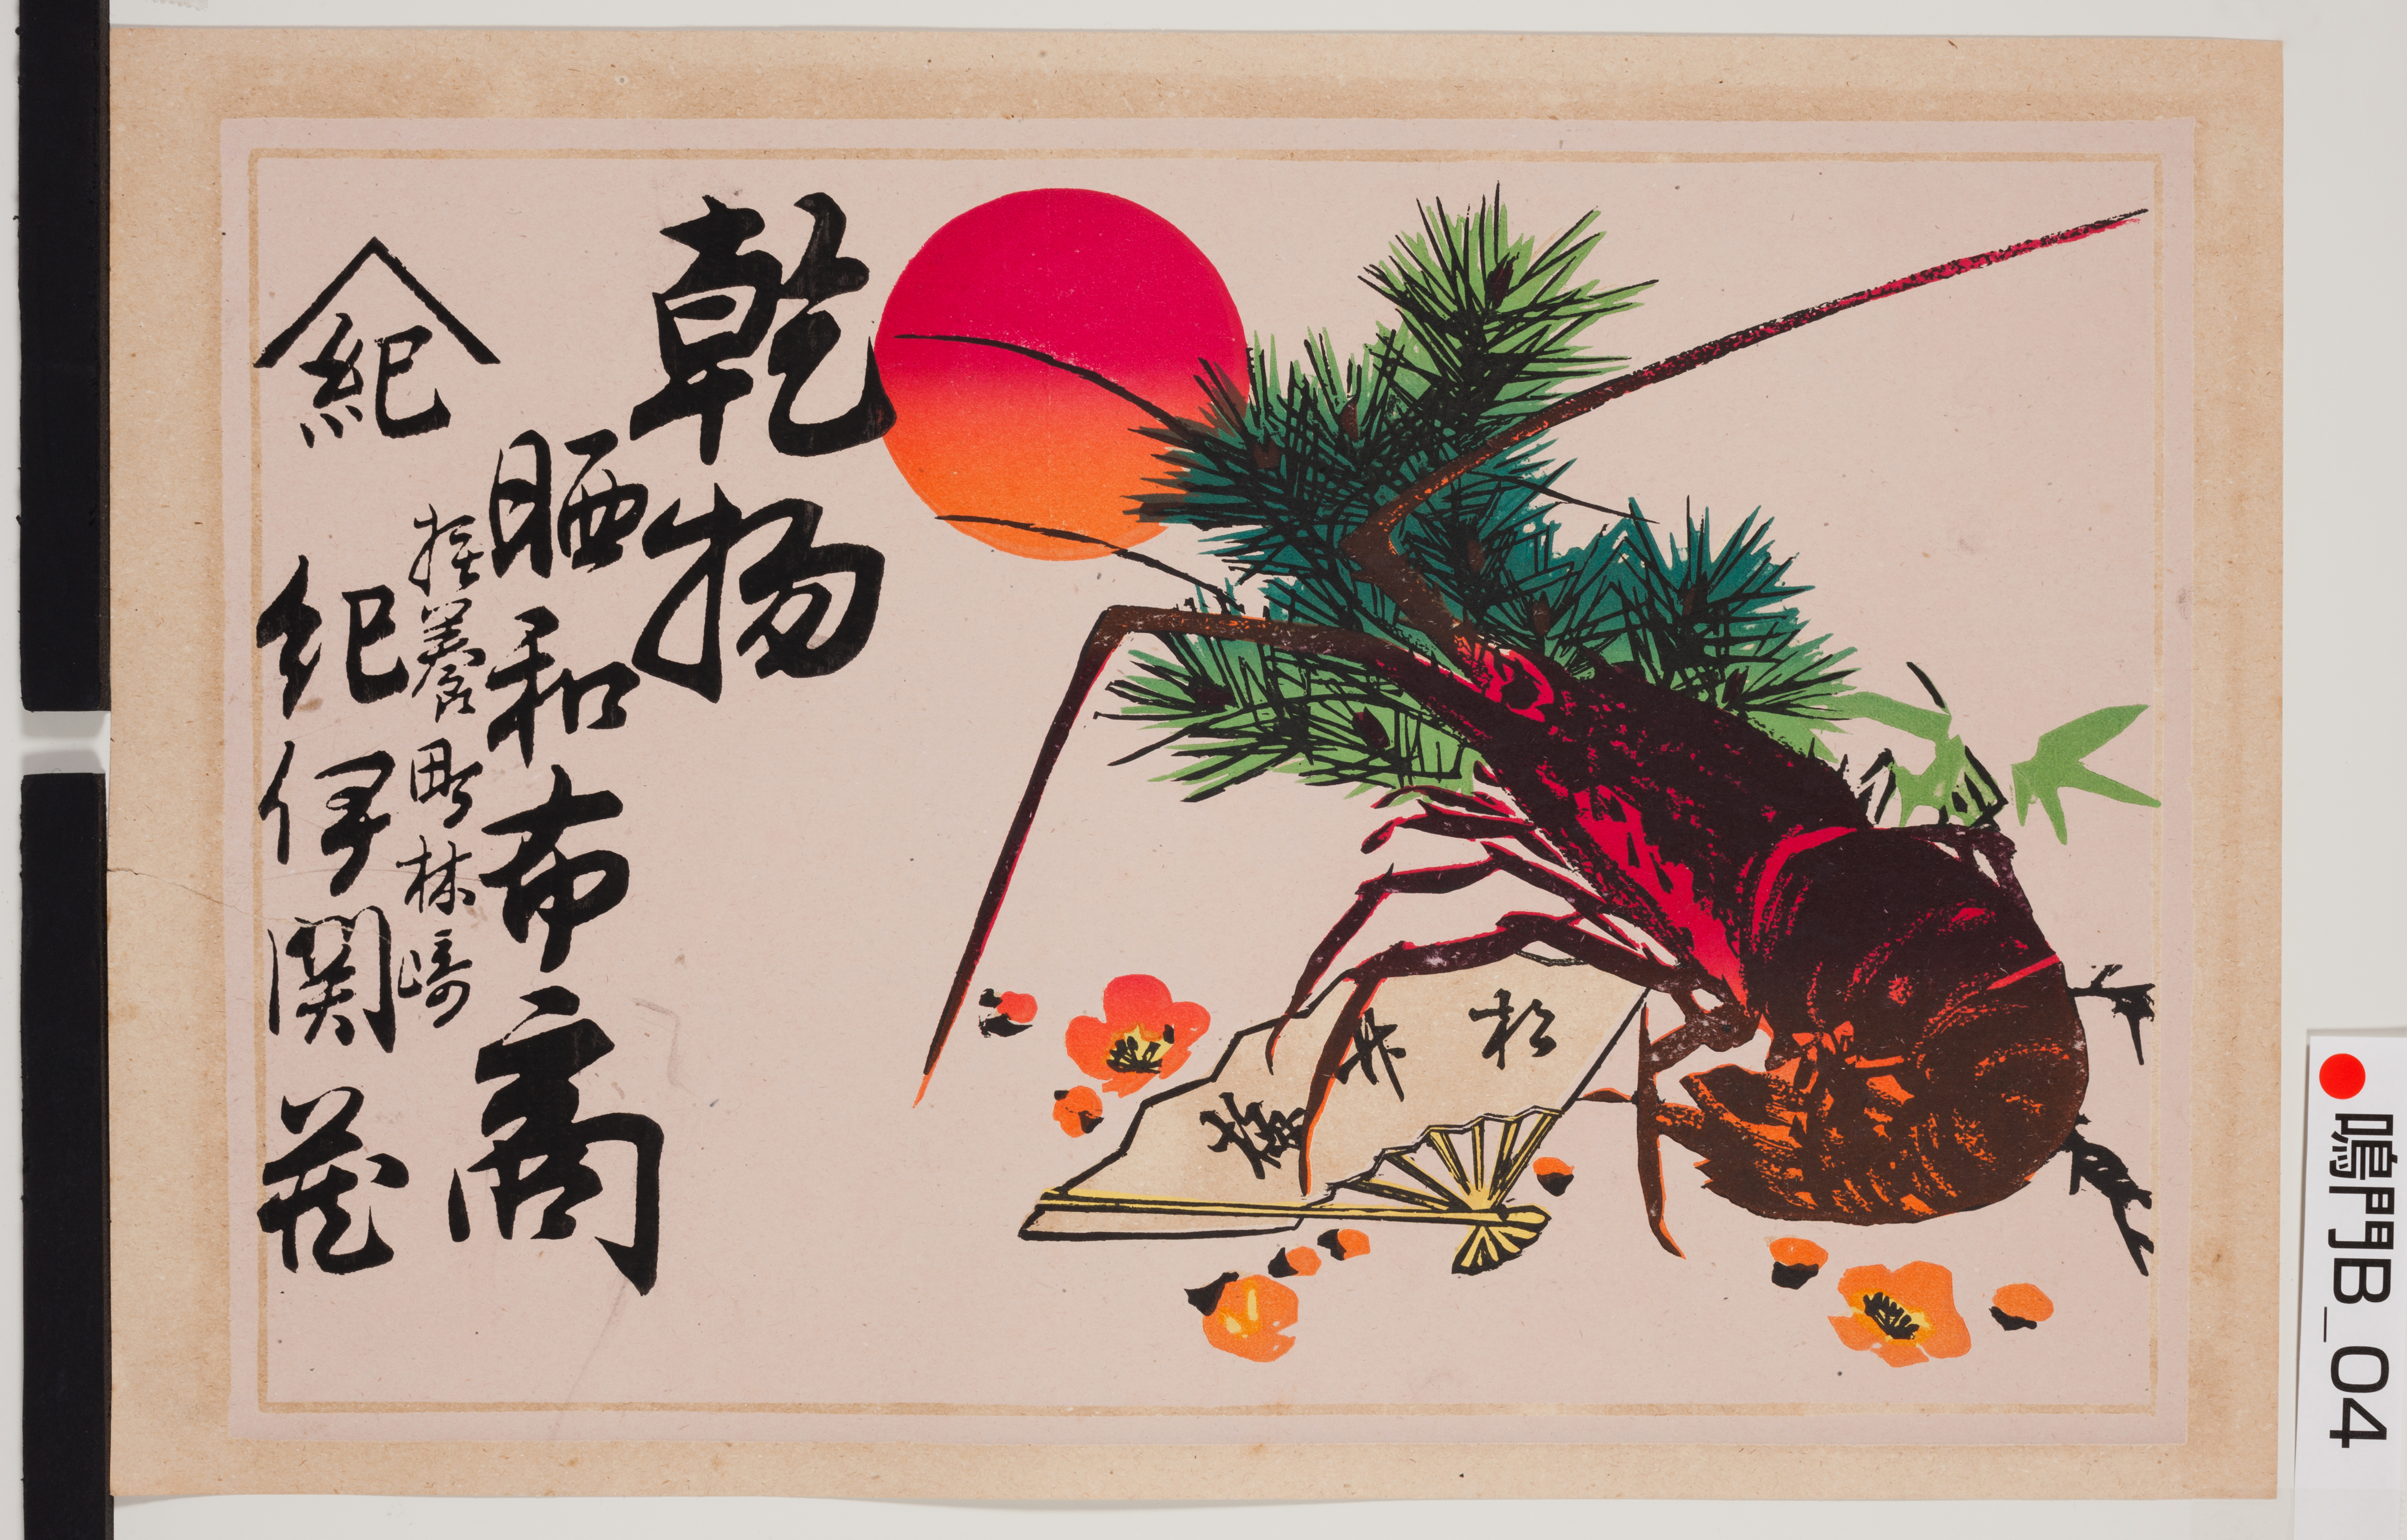 乾物
晒和布商
撫養町林崎
紀
紀伊関茂
松
竹
梅
鳴門B_04